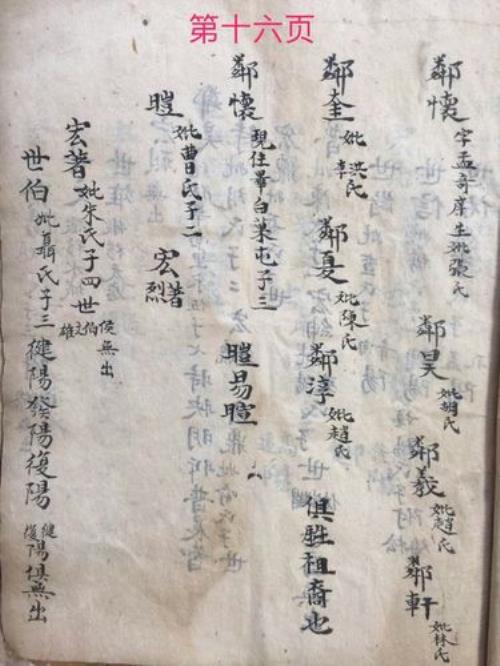 第十六页
鄰懷 字孟奇庠生妣張氏 鄰昊 妣胡氏 鄰羲 妣趙氏 鄰軒 妣林氏
鄰奎 妣洪氏李氏 鄰夏 妣陳氏 鄰淳 妣趙氏 俱胜祖裔也
鄰懷 現住畢白菓屯子三 暟易暄
暟 妣曹氏子二 宏著烈
宏著 妣朱氏子四世俊伯雄 無出
世伯 妣聶氏子三健陽發陽復陽 健復陽俱無出